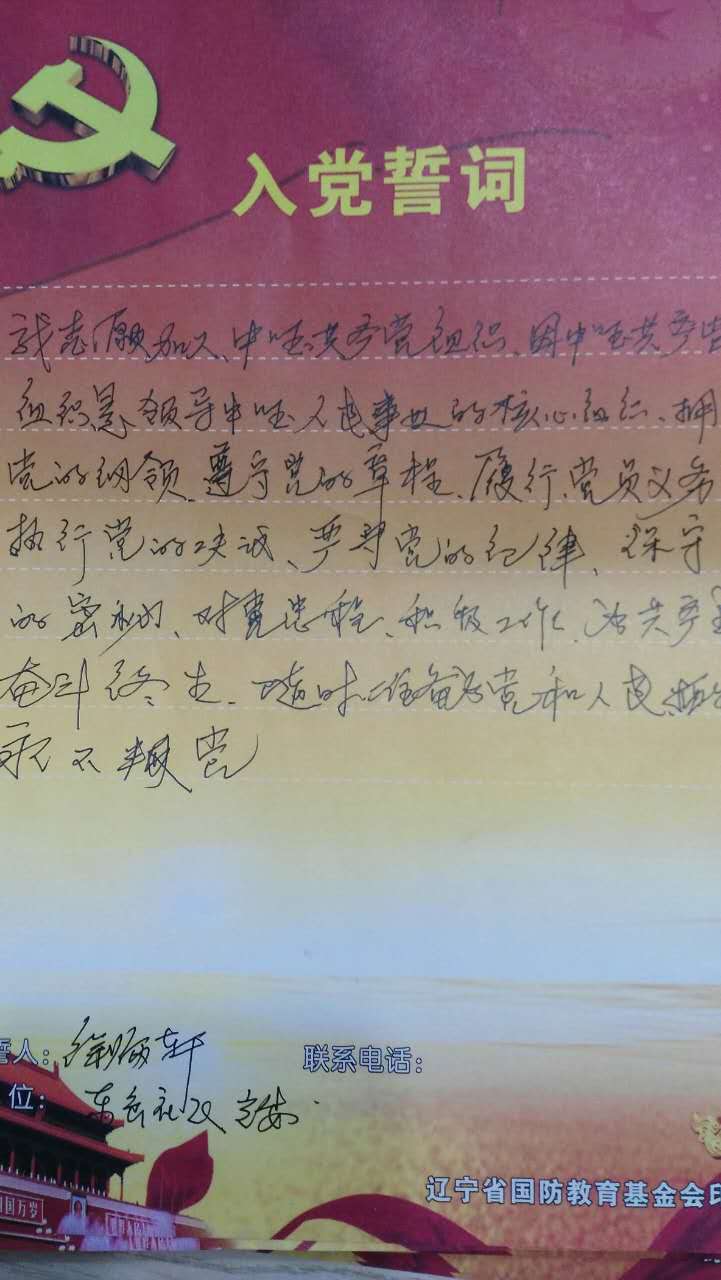 入党誓词
我志愿加入中国共产党组织、因中国共产党
组织是领导中国人民事业的核心组织、拥
党的纲领、遵守党的章程、履行党员义务
执行党的决议、严守党的纪律、保守
的密秘、对党忠程、积极工作、为共产主
奋斗终生、随时准备为党和人民牺牲
永不叛党
誓人：徐 轩 联系电话：
位：东 社区
辽宁省国防教育基金会印